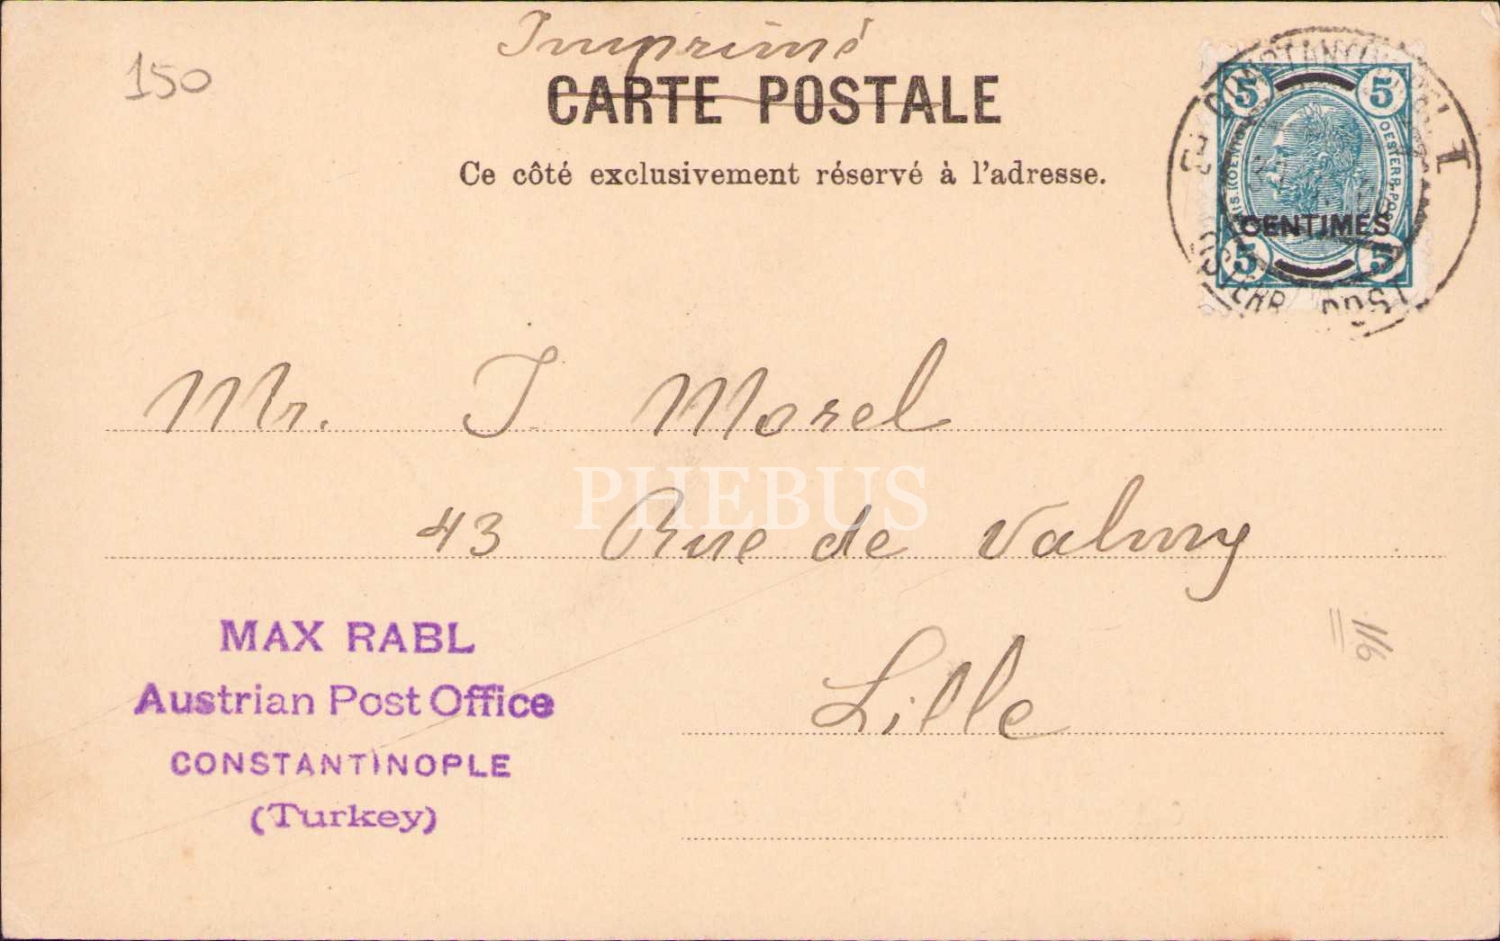 Imprimé
150
CARTE POSTALE
Ce côté exclusivement réservé à l'adresse.
5 5
CENTIMES
5 5
OESTERR. POST
I
Mr. J. Morel
PHEBUS
43 Rue de Valmy
Lille
116
MAX RABL
Austrian Post Office
CONSTANTINOPLE
(Turkey)